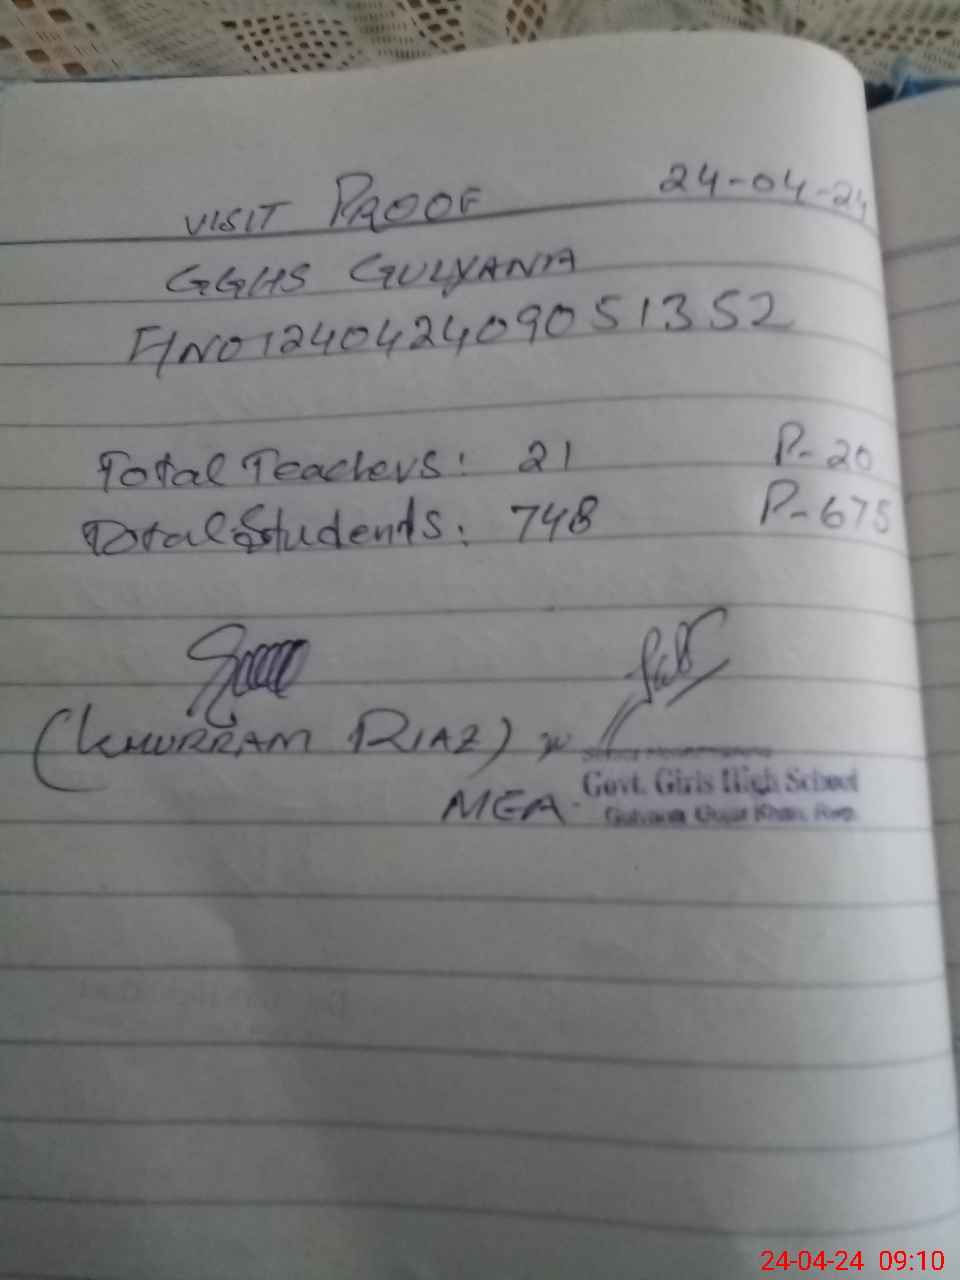 VISIT PROOF 24-04-24
GGHS GULYANA
F/NO 124042409051352
Total Teachers: 21 P-20
Total Students: 748 P-675
(KHURRAM RIAZ)
MEA
Govt. Girls High School
Gulyana Gujar Khan, Rwp.
24-04-24 09:10